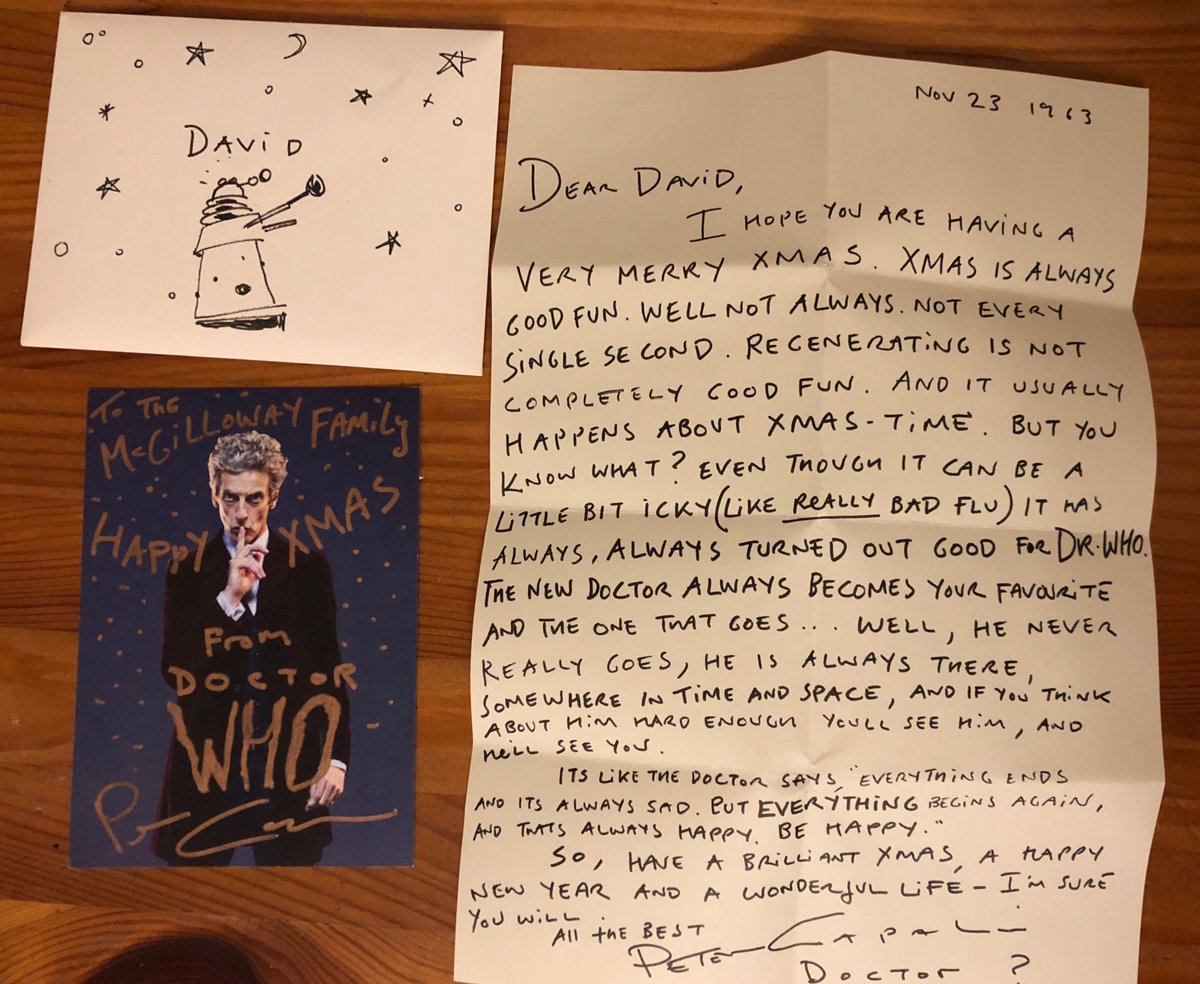 DAVID
TO THE
McGILLOWAY FAMILY
HAPPY XMAS
FROM
DOCTOR
WHO
NOV 23 1963
DEAR DAVID,
I HOPE YOU ARE HAVING A
VERY MERRY XMAS. XMAS IS ALWAYS
GOOD FUN. WELL NOT ALWAYS. NOT EVERY
SINGLE SECOND. REGENERATING IS NOT
COMPLETELY GOOD FUN. AND IT USUALLY
HAPPENS ABOUT XMAS-TIME. BUT YOU
KNOW WHAT? EVEN THOUGH IT CAN BE A
LITTLE BIT ICKY (LIKE REALLY BAD FLU) IT HAS
ALWAYS, ALWAYS TURNED OUT GOOD FOR DR. WHO.
THE NEW DOCTOR ALWAYS BECOMES YOUR FAVOURITE
AND THE ONE THAT GOES... WELL, HE NEVER
REALLY GOES, HE IS ALWAYS THERE,
SOMEWHERE IN TIME AND SPACE, AND IF YOU THINK
ABOUT HIM HARD ENOUGH YOULL SEE HIM, AND
HE'LL SEE YOU.
ITS LIKE THE DOCTOR SAYS, "EVERYTHING ENDS
AND ITS ALWAYS SAD. BUT EVERYTHING BEGINS AGAIN,
AND THATS ALWAYS HAPPY. BE HAPPY."
SO, HAVE A BRILLIANT XMAS, A HAPPY
NEW YEAR AND A WONDERFUL LIFE - I'M SURE
YOU WILL.
All the BEST
PETER CAPALDI
DOCTOR ?